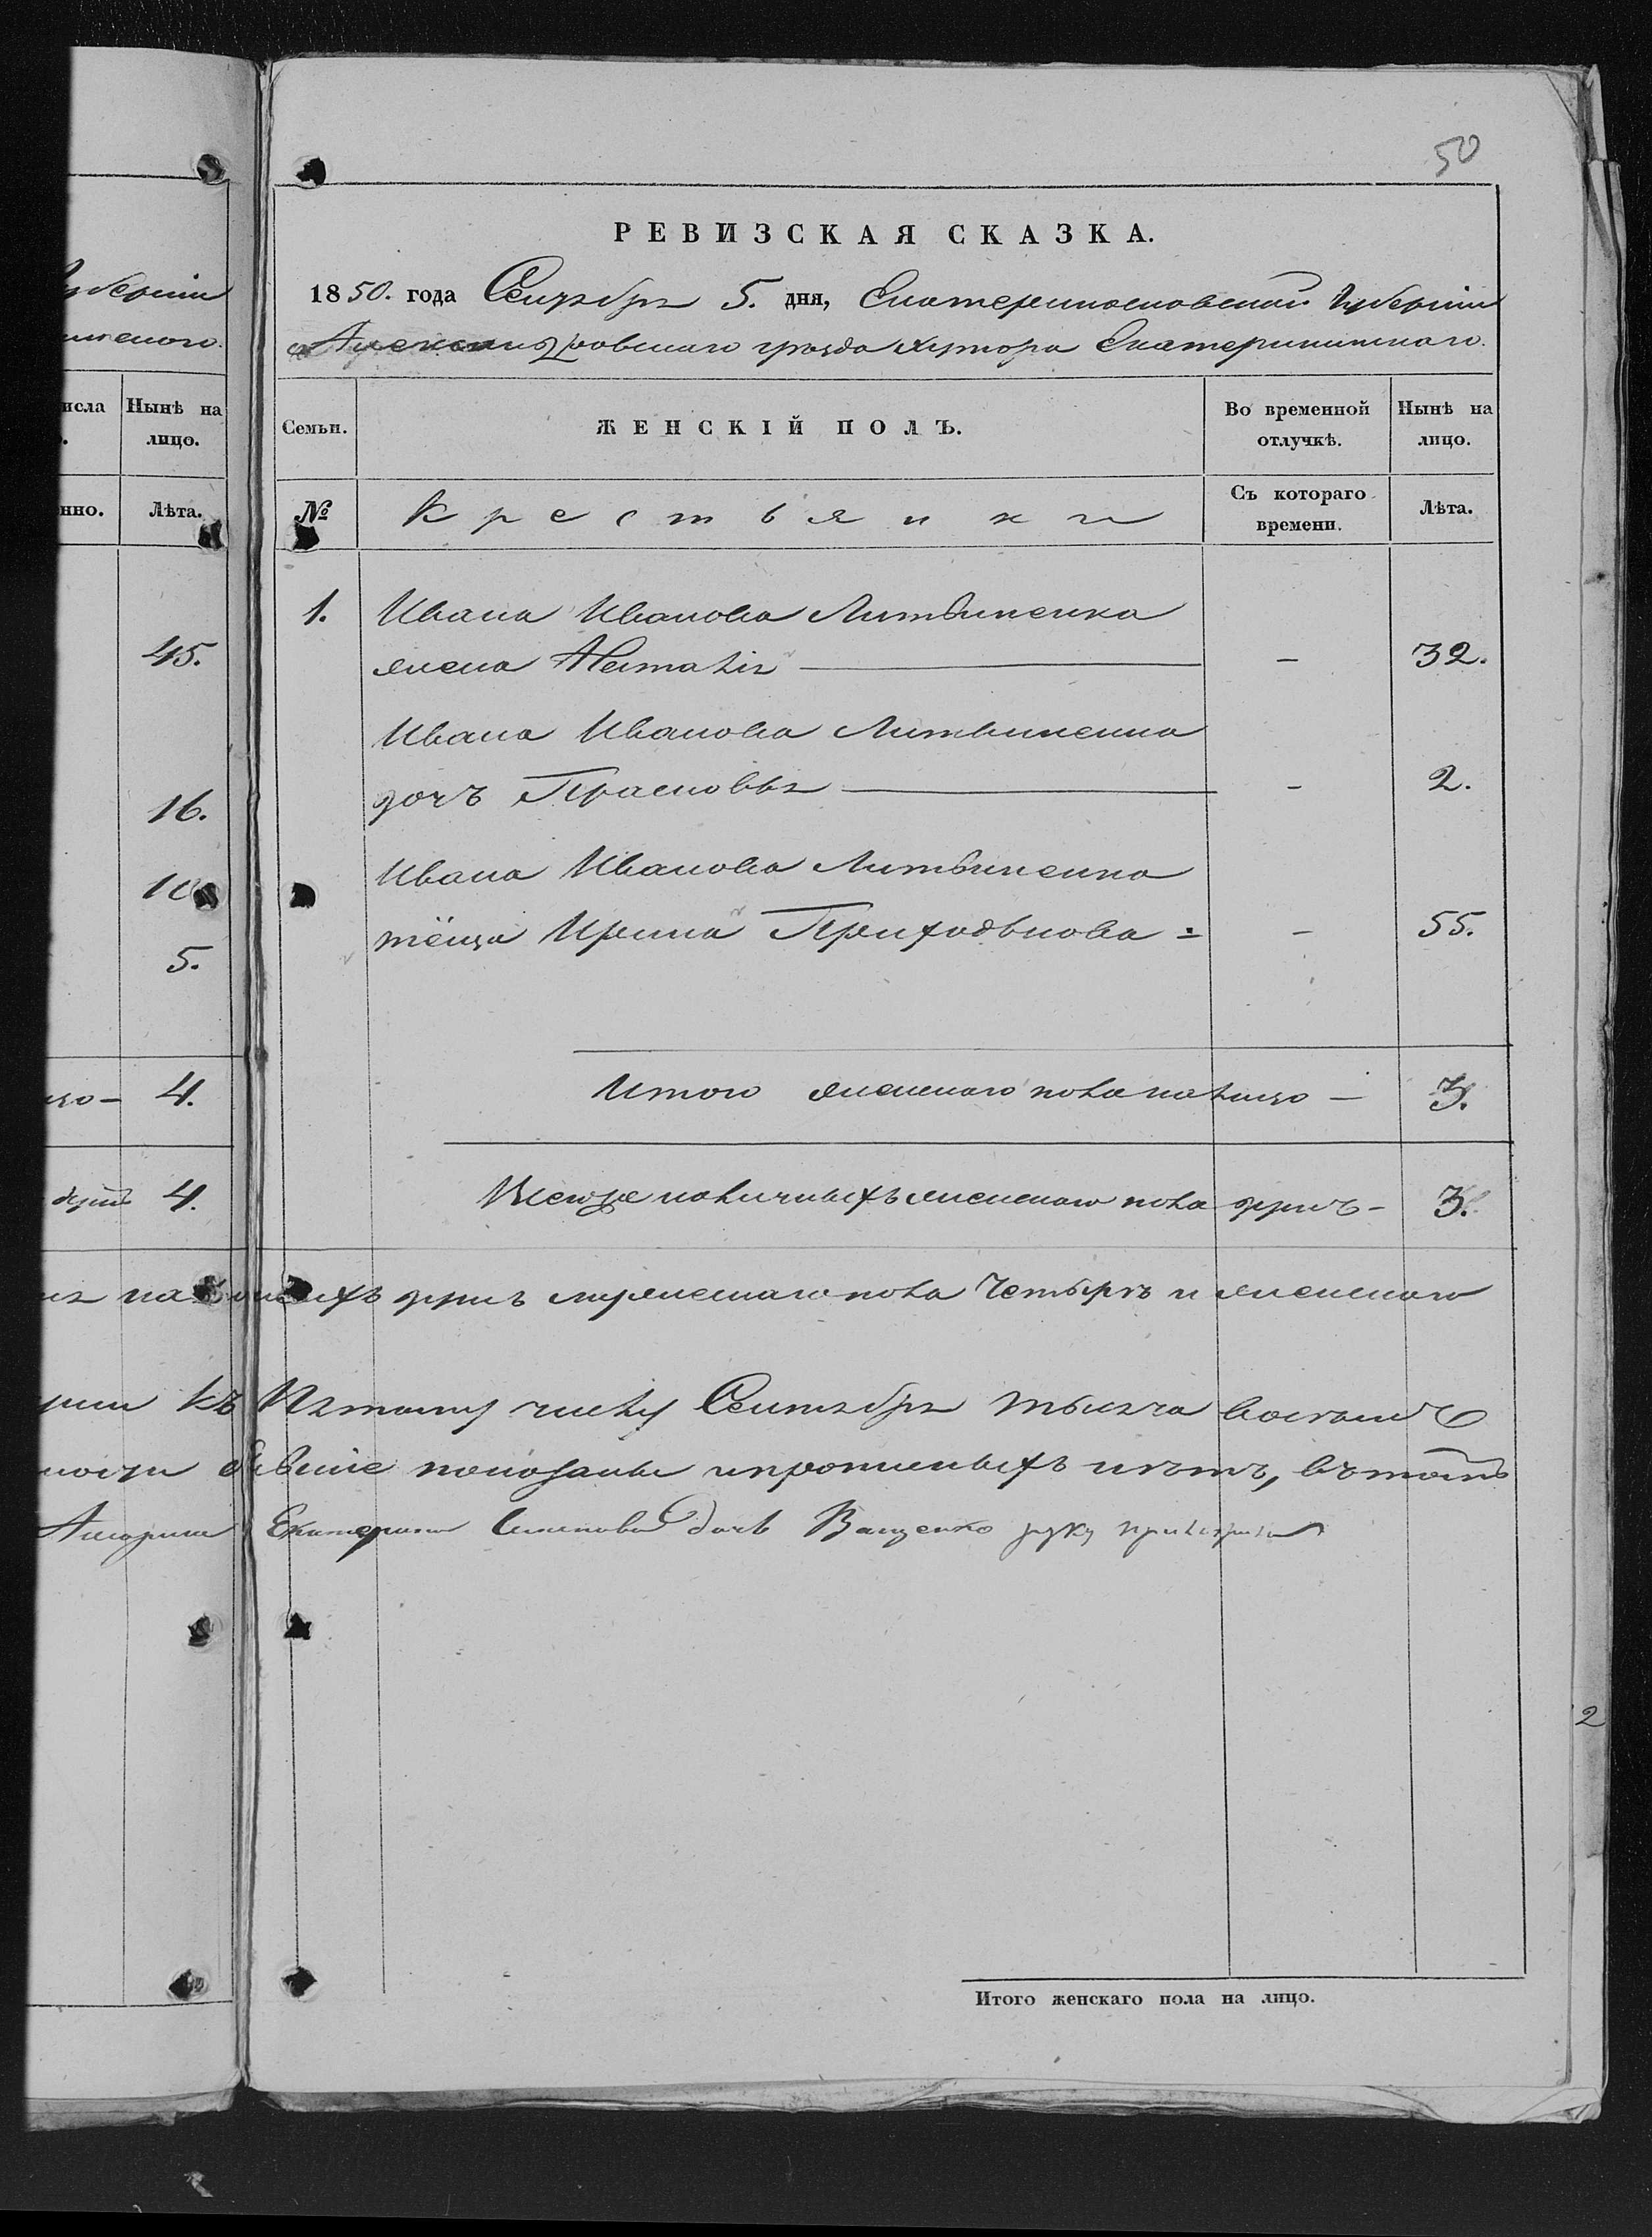 50
РЕВИЗСКАЯ СКАЗКА.
1850. года Сентября 5. дня, Екатеринославской Губерніи
Александровскаго уѣзда хутора Екатерининскаго.
Семьи.
ЖЕНСКІЙ ПОЛЪ.
Во временной отлучкѣ.
Нынѣ на лицо.
№
Крестьянки
Съ котораго времени.
Лѣта.
1. Ивана Иванова Литвиненка
жена Наталія — 32.
Ивана Иванова Литвиненка
дочь Прасковья — 2.
Ивана Иванова Литвиненка
тёща Ирина Приходькова — 55.
Итого женскаго пола на лицо — 3.
Всего же наличныхъ женскаго пола душъ — 3.
душъ мужескаго пола Четыре и женскаго
къ Пятому числу Сентября тысяча восемьсо
показаны и прописныхъ нѣтъ, въ томъ
Екатерина дочь Ващенко руку приложила
Итого женскаго пола на лицо.
Нынѣ на лицо.
Лѣта.
45.
16.
10
5.
4.
душъ 4.
2